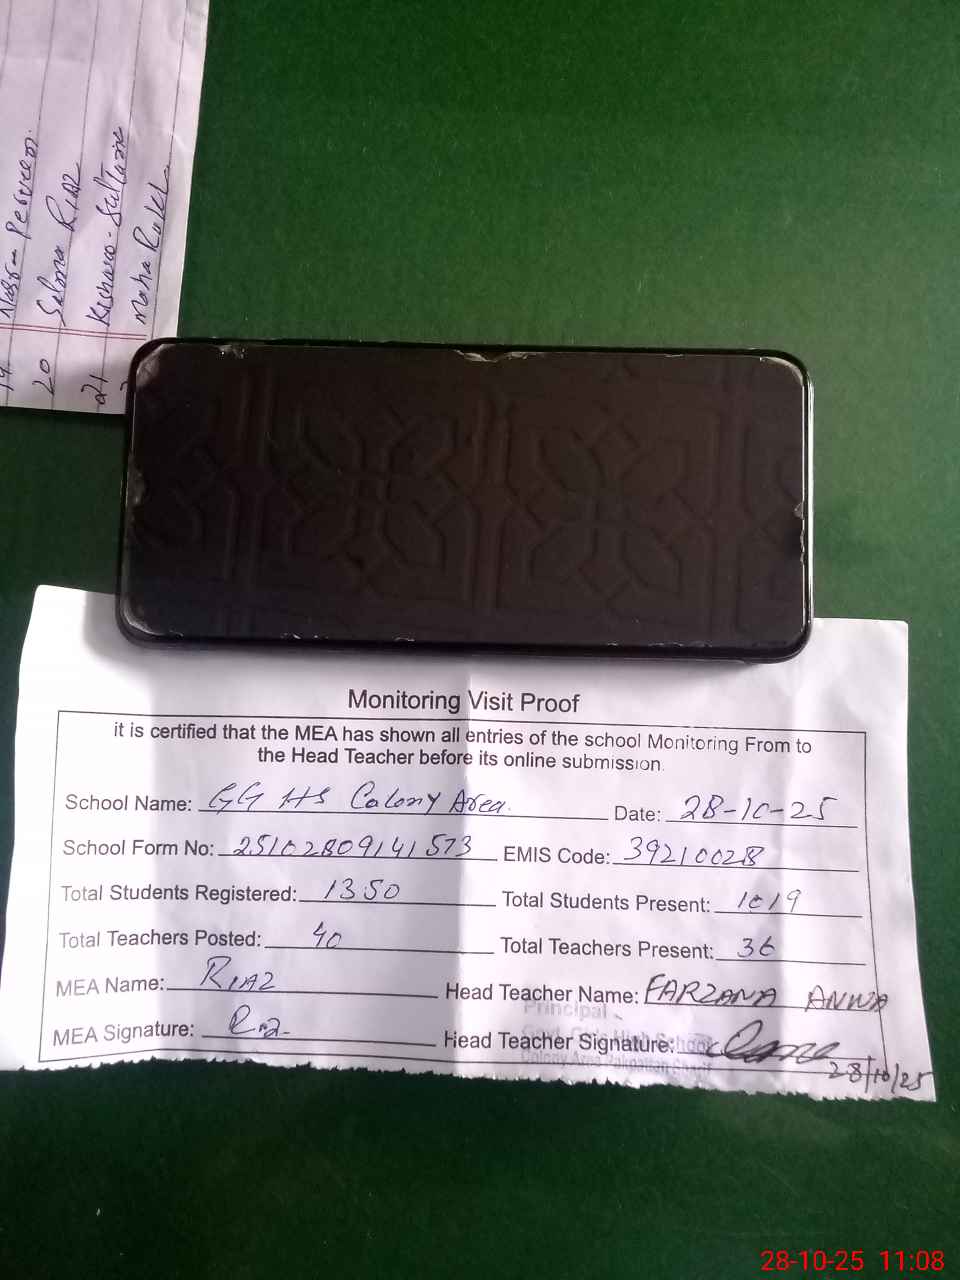 20 Salma Riaz
21 Kishwar Sultana
Monitoring Visit Proof
it is certified that the MEA has shown all entries of the school Monitoring From to
the Head Teacher before its online submission.
School Name: GG HS Colony Area. Date: 28-10-25
School Form No: 25102809141573 EMIS Code: 39210028
Total Students Registered: 1350 Total Students Present: 1019
Total Teachers Posted: 40 Total Teachers Present: 36
MEA Name: RIAZ Head Teacher Name: FARZANA ANWA
Principal
MEA Signature: Head Teacher Signature:
Govt. Girls High School
Colony Area Pakpattan Sharif
28/10/25
28-10-25 11:08